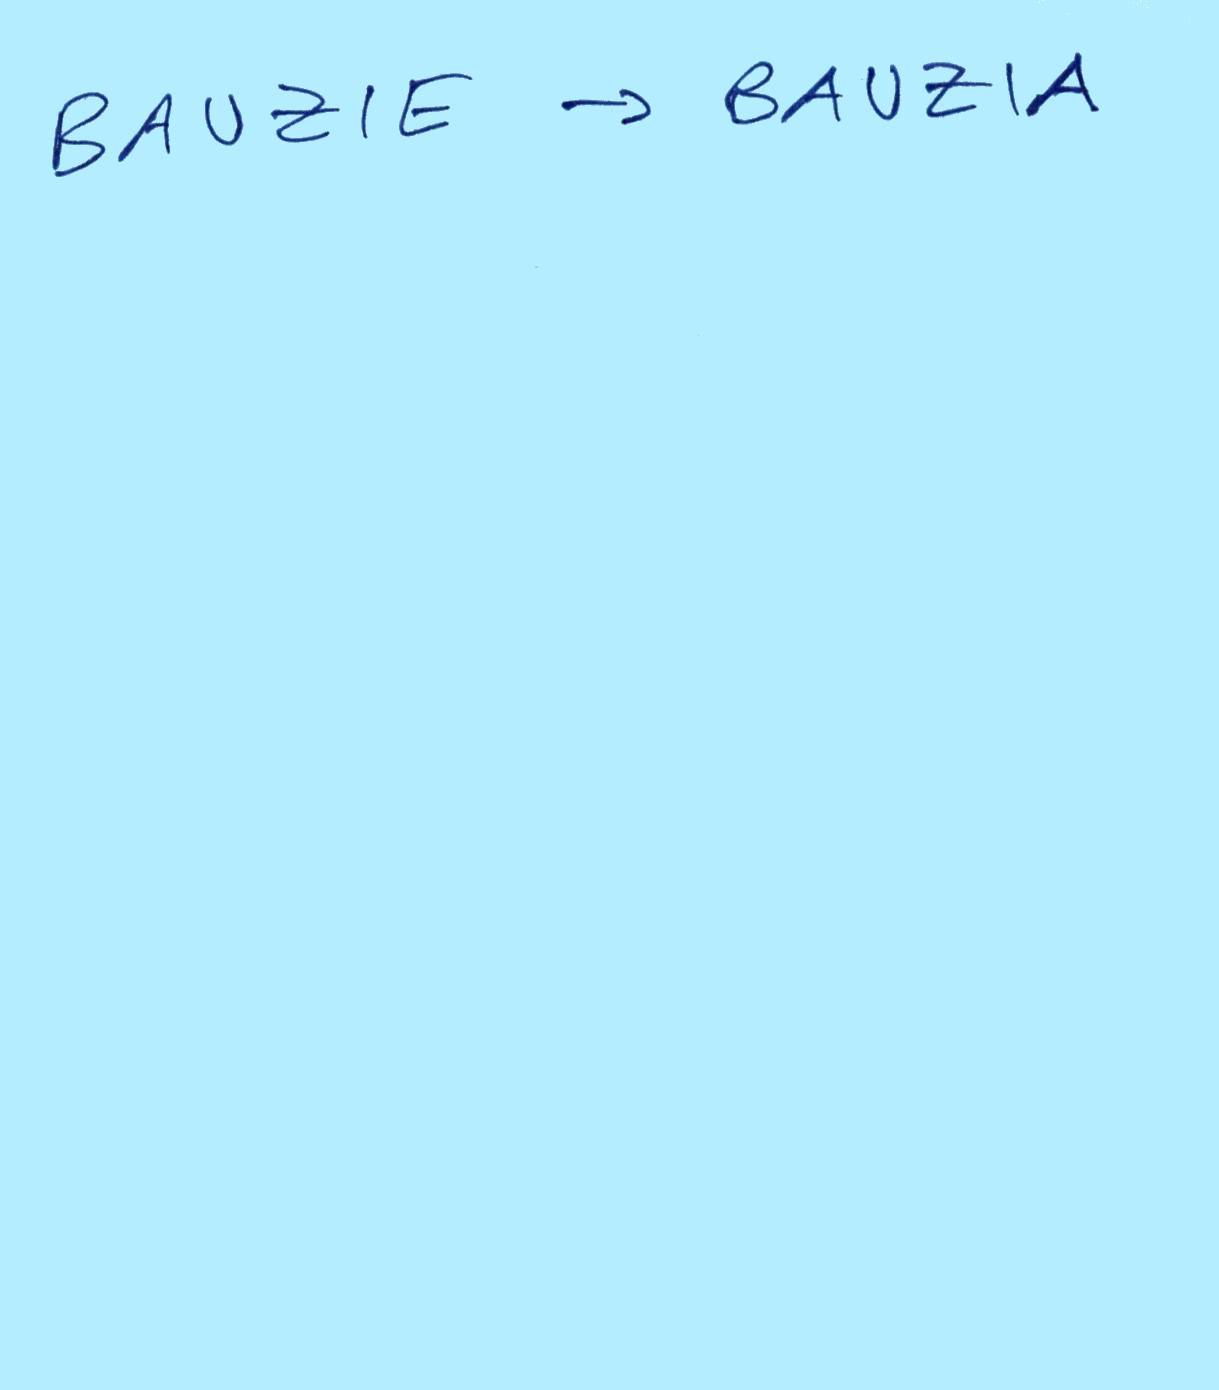 BAUZIE → BAUZIA